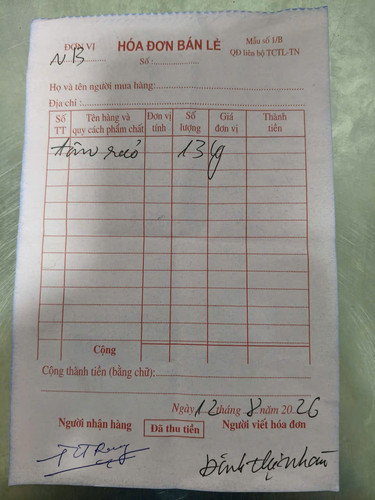 ĐƠN VỊ HÓA ĐƠN BÁN LẺ Mẫu số 1/B
NB Số : QĐ liên bộ TCTL-TN
Họ và tên người mua hàng:
Địa chỉ :
Số TT Tên hàng và quy cách phẩm chất Đơn vị tính Số lượng Giá đơn vị Thành tiền
13
Cộng
Cộng thành tiền (bằng chữ):
Ngày 12 tháng 8 năm 2026
Người nhận hàng Đã thu tiền Người viết hóa đơn